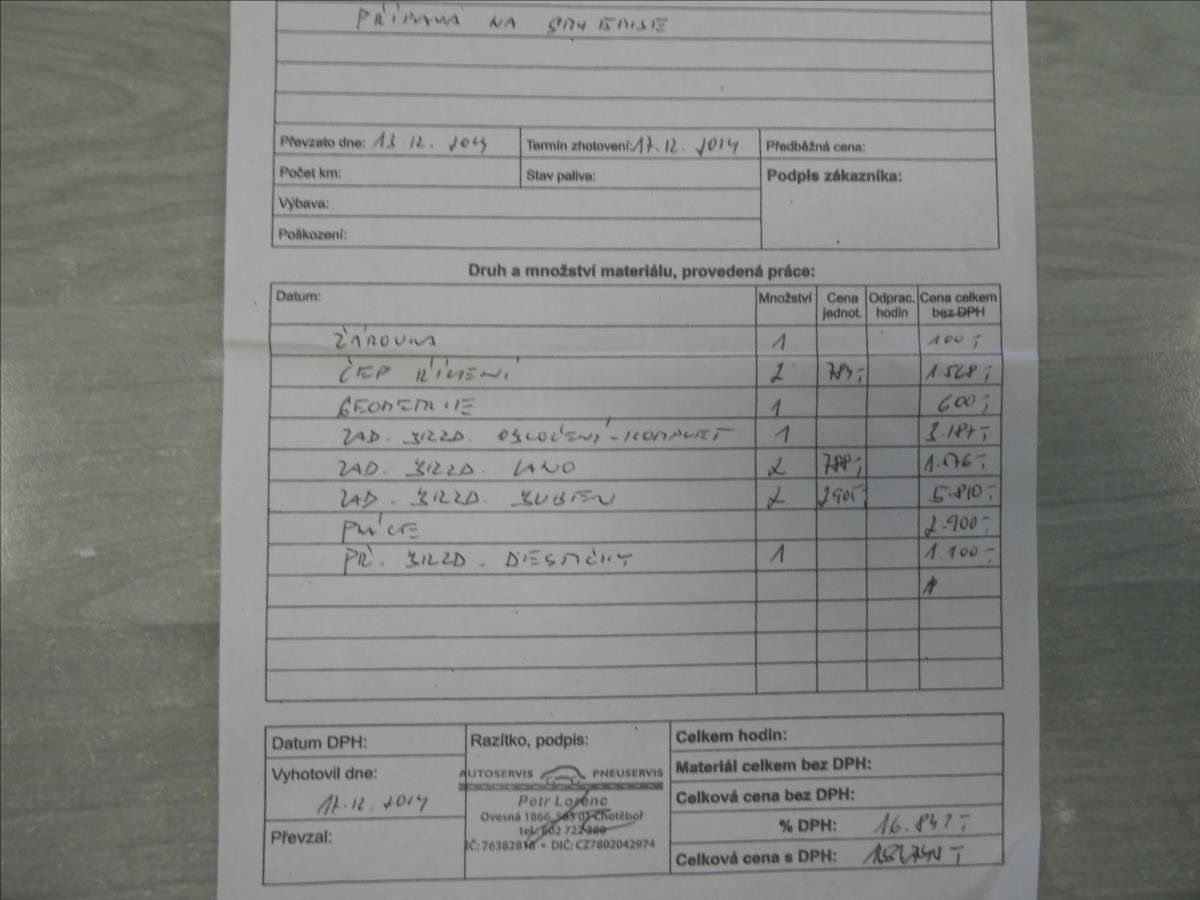 PŘÍPRAVA NA
Převzato dne: 13.12. 2014 Termín zhotovení: 17.12. 2014 Předběžná cena:
Počet km: Stav paliva: Podpis zákazníka:
Výbava:
Poškození:
Druh a množství materiálu, provedená práce:
Datum: Množství Cena jednot. Odprac. hodin Cena celkem bez DPH
ŽÁROVKA 1 100,-
ČEP ŘÍZENÍ 2 784,- 1.568,-
GEOMETRIE 1 600,-
ZAD. BRZD. OBLOŽENÍ-KOMPLET 1 3.187,-
ZAD. BRZD. LANO 2 788,- 1.576,-
ZAD. BRZD. BUBEN 2 2905,- 5.810,-
PRÁCE 2.900,-
PŘ. BRZD. DESTIČKY 1 1.100,-
Datum DPH: Razítko, podpis: Celkem hodin:
Vyhotovil dne: 17.12. 2014
Převzal:
AUTOSERVIS PNEUSERVIS
Petr Lorenc
Ovesná 1866, 583 01 Chotěboř
tel. 602 722 380
IČ: 76382818 • DIČ: CZ7802042974
Materiál celkem bez DPH:
Celková cena bez DPH:
% DPH: 16.841,-
Celková cena s DPH: